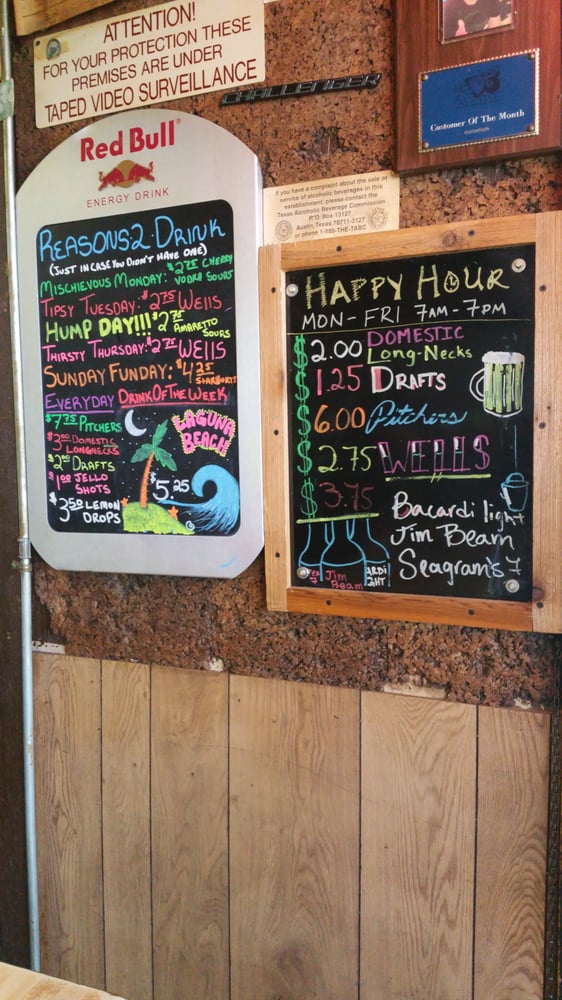 ATTENTION!
FOR YOUR PROTECTION THESE
PREMISES ARE UNDER
TAPED VIDEO SURVEILLANCE
CHALLENGER
Customer Of The Month
If you have a complaint about the sale or
service of alcoholic beverages in this
establishment, please contact:
Texas Alcoholic Beverage Commission
P.O. Box 13127
Austin, Texas 78711-3127
or phone 1-888-THE-TABC
Red Bull
ENERGY DRINK
REASONS 2 DRINK
(JUST IN CASE YOU DIDN'T HAVE ONE)
MISCHIEVOUS MONDAY: $2.75 CHERRY
VODKA SOURS
TIPSY TUESDAY: $2.75 WELLS
HUMP DAY!!! $2.75 AMARETTO
SOURS
THIRSTY THURSDAY: $2.75 WELLS
SUNDAY FUNDAY: $4.25
EVERYDAY DRINK OF THE WEEK
$7.75 PITCHERS
$3.00 DOMESTIC
LONGNECKS
$2.00 DRAFTS
$1.00 JELLO
SHOTS
$3.50 LEMON
DROPS
LAGUNA
BEACH
$5.25
HAPPY HOUR
MON-FRI 7AM-7PM
$2.00 DOMESTIC
Long-Necks
$1.25 DRAFTS
$6.00 Pitchers
$2.75 WELLS
$3.75
Bacardi light
Jim Beam
Seagram's 7
Jim
Beam